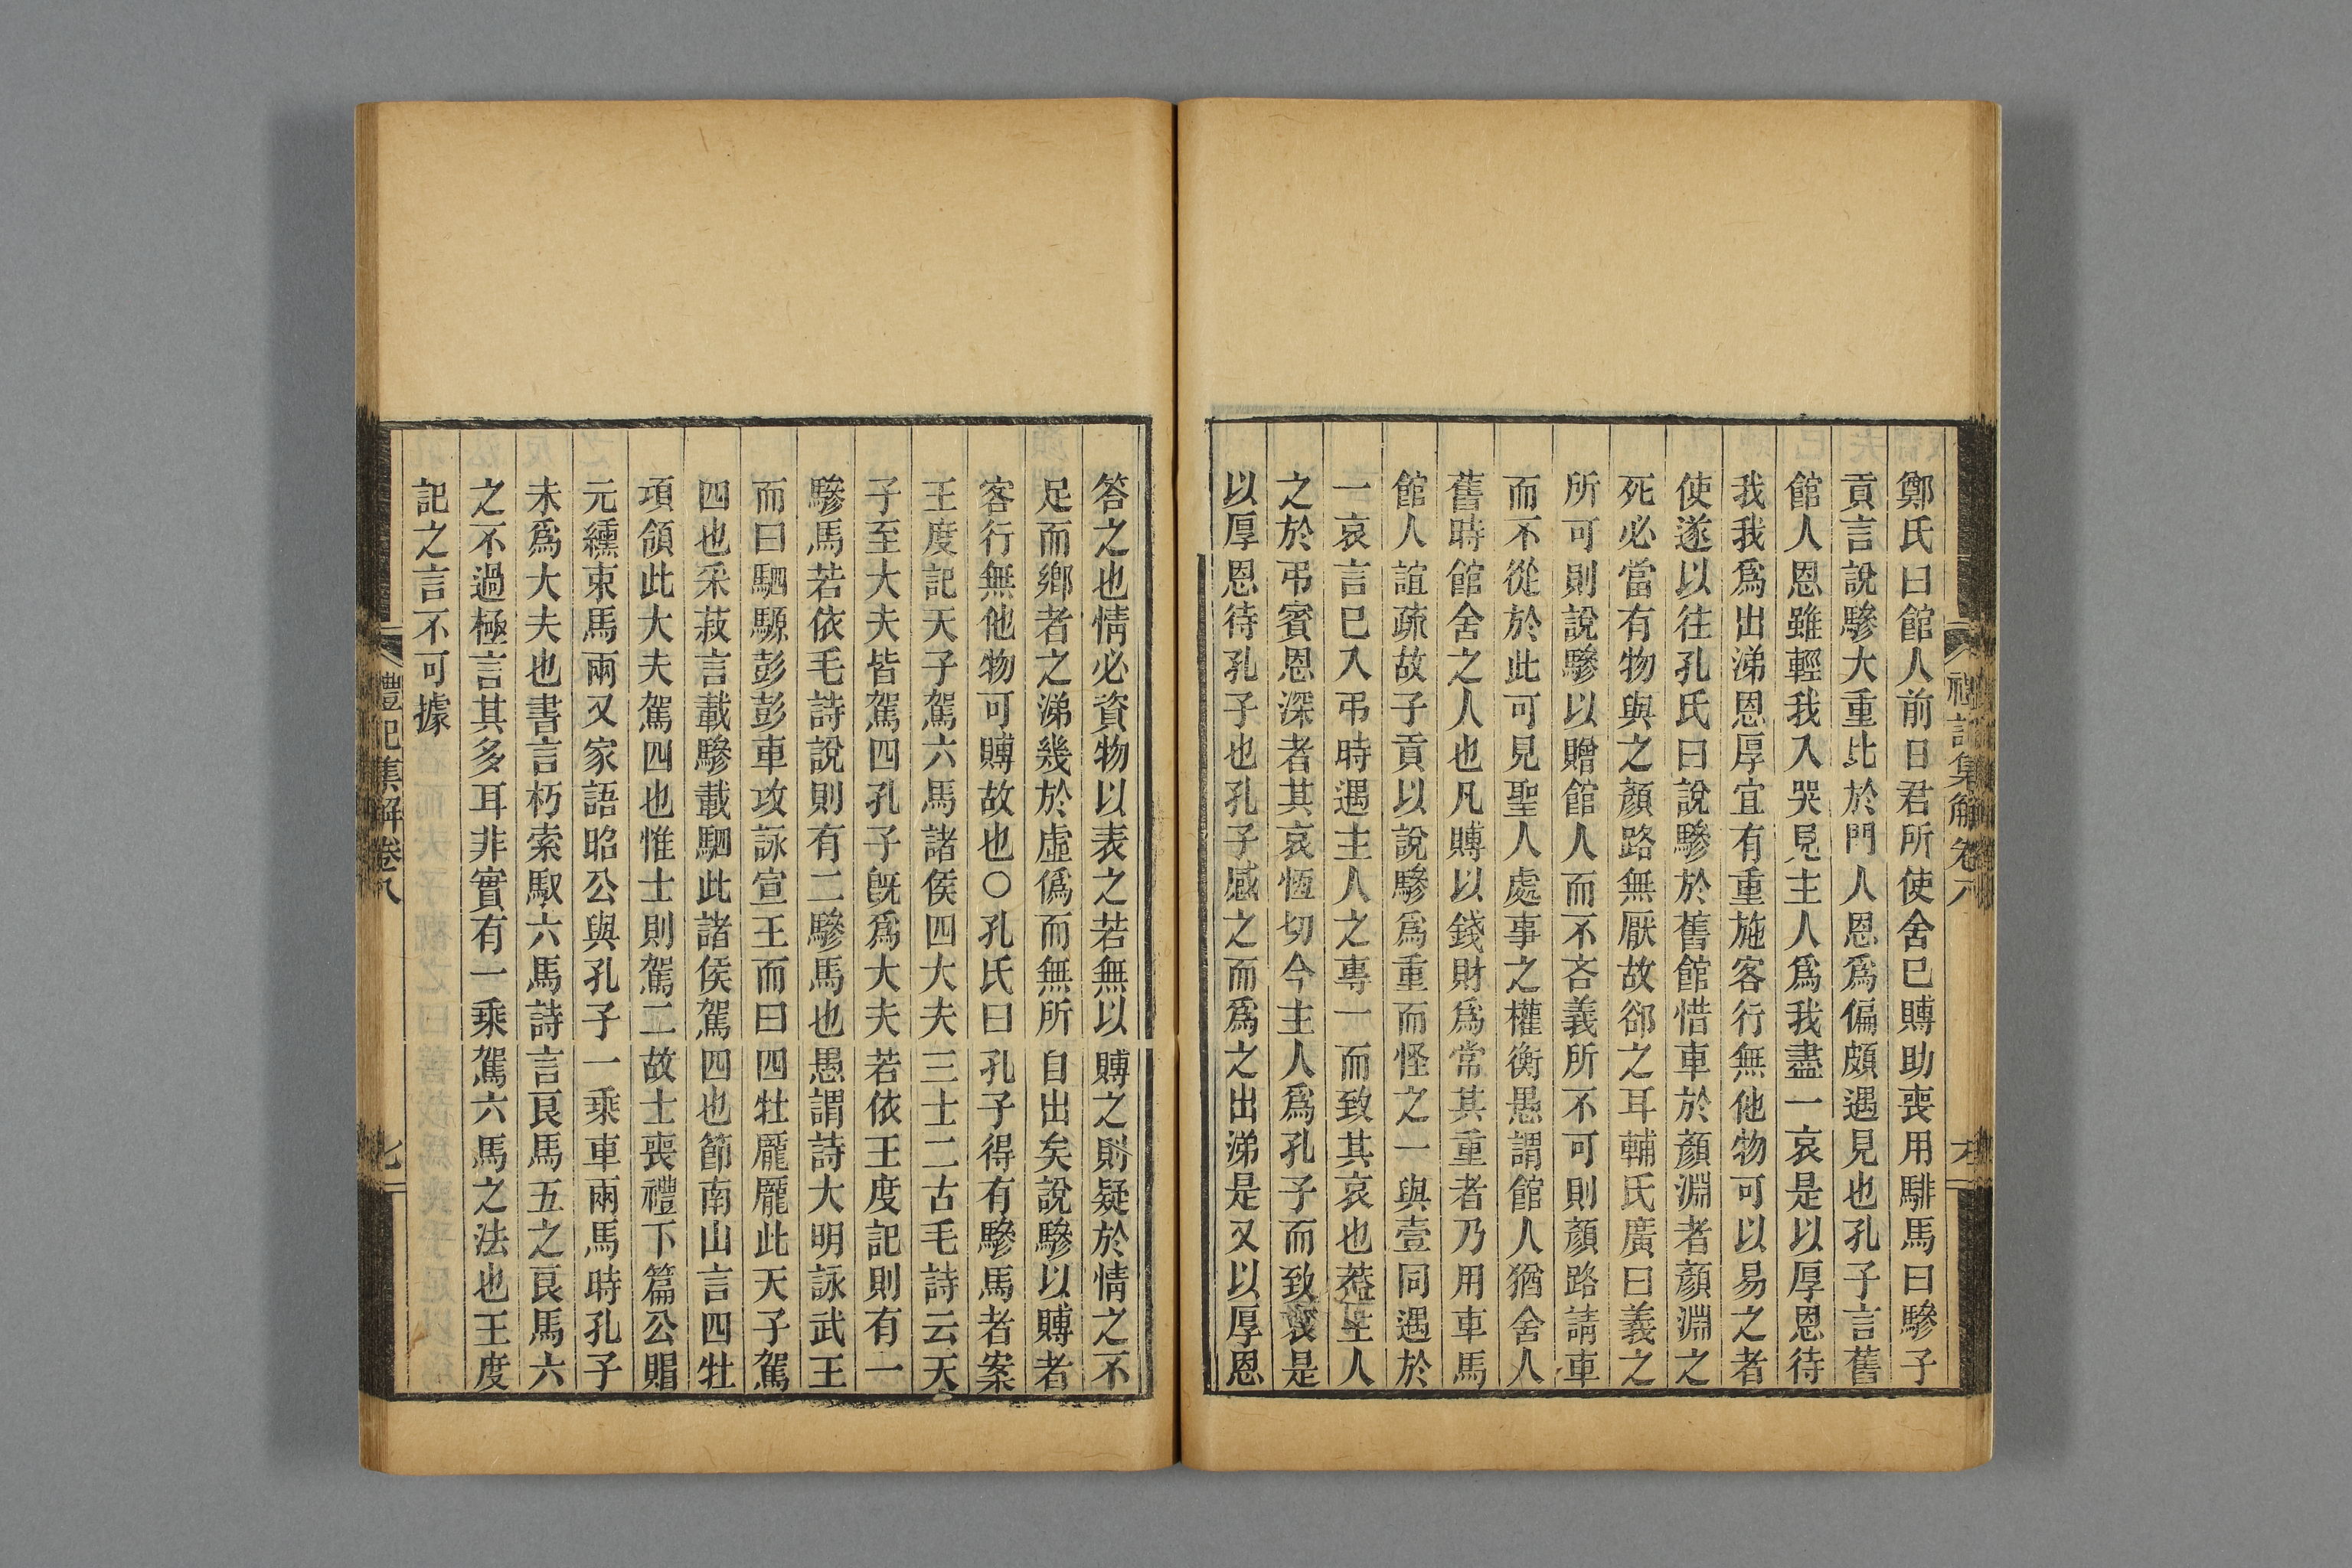 鄭氏曰館人前日君所使舍已賻助喪用騑馬曰驂子
貢言說驂大重比於門人恩爲偏頗遇見也孔子言舊
館人恩雖輕我入哭見主人爲我盡一哀是以厚恩待
我我爲出涕恩厚宜有重施客行無他物可以易之者
使遂以往孔氏曰說驂於舊館惜車於顏淵者顏淵之
死必當有物與之顏路無厭故郤之耳輔氏廣曰義之
所可則說驂以贈館人而不吝義所不可則顏路請車
而不從於此可見聖人處事之權衡愚謂館人猶舍人
舊時館舍之人也凡賻以錢財爲常其重者乃用車馬
館人誼疏故子貢以說驂爲重而怪之一與壹同遇於
一哀言已入弔時遇主人之專一而致其哀也葢主人
之於弔賓恩深者其哀恆切今主人爲孔子而致哀是
以厚恩待孔子也孔子感之而爲之出涕是又以厚恩
答之也情必資物以表之若無以賻之則疑於情之不
足而鄉者之涕幾於虛僞而無所自出矣說驂以賻者
客行無他物可賻故也○孔氏曰孔子得有驂馬者案
王度記天子駕六馬諸侯四大夫三士二古毛詩云天
子至大夫皆駕四孔子旣爲大夫若依王度記則有一
驂馬若依毛詩說則有二驂馬也愚謂詩大明詠武王
而曰駟騵彭彭車攻詠宣王而曰四牡龐龐此天子駕
四也采菽言載驂載駟此諸侯駕四也節南山言四牡
項領此大夫駕四也惟士則駕二故士喪禮下篇公賵
元纁束馬兩又家語昭公與孔子一乘車兩馬時孔子
未爲大夫也書言朽索馭六馬詩言良馬五之良馬六
之不過極言其多耳非實有一乘駕六馬之法也王度
記之言不可據
禮記集解卷八